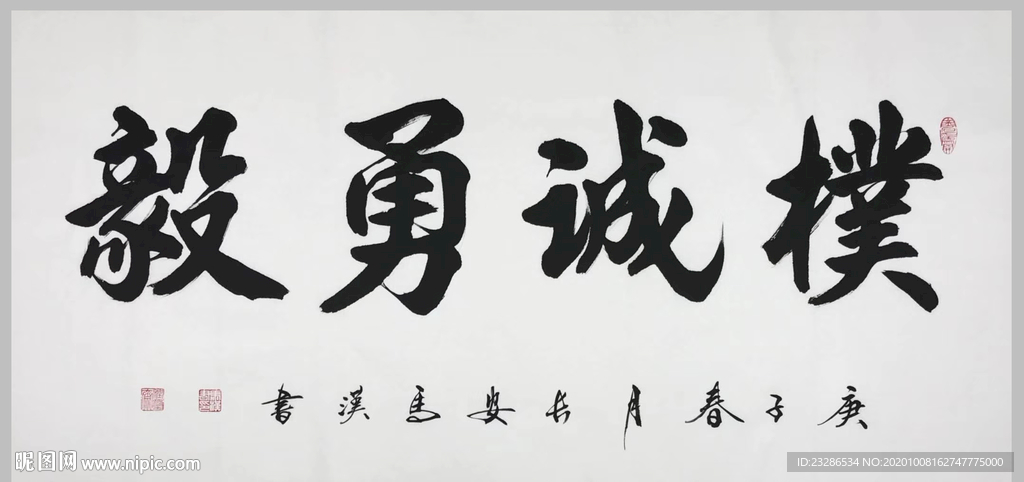 樸誠勇毅
庚子春月长安马漢書
昵图网 www.nipic.com
ID:23286534 NO:20201008162747775000